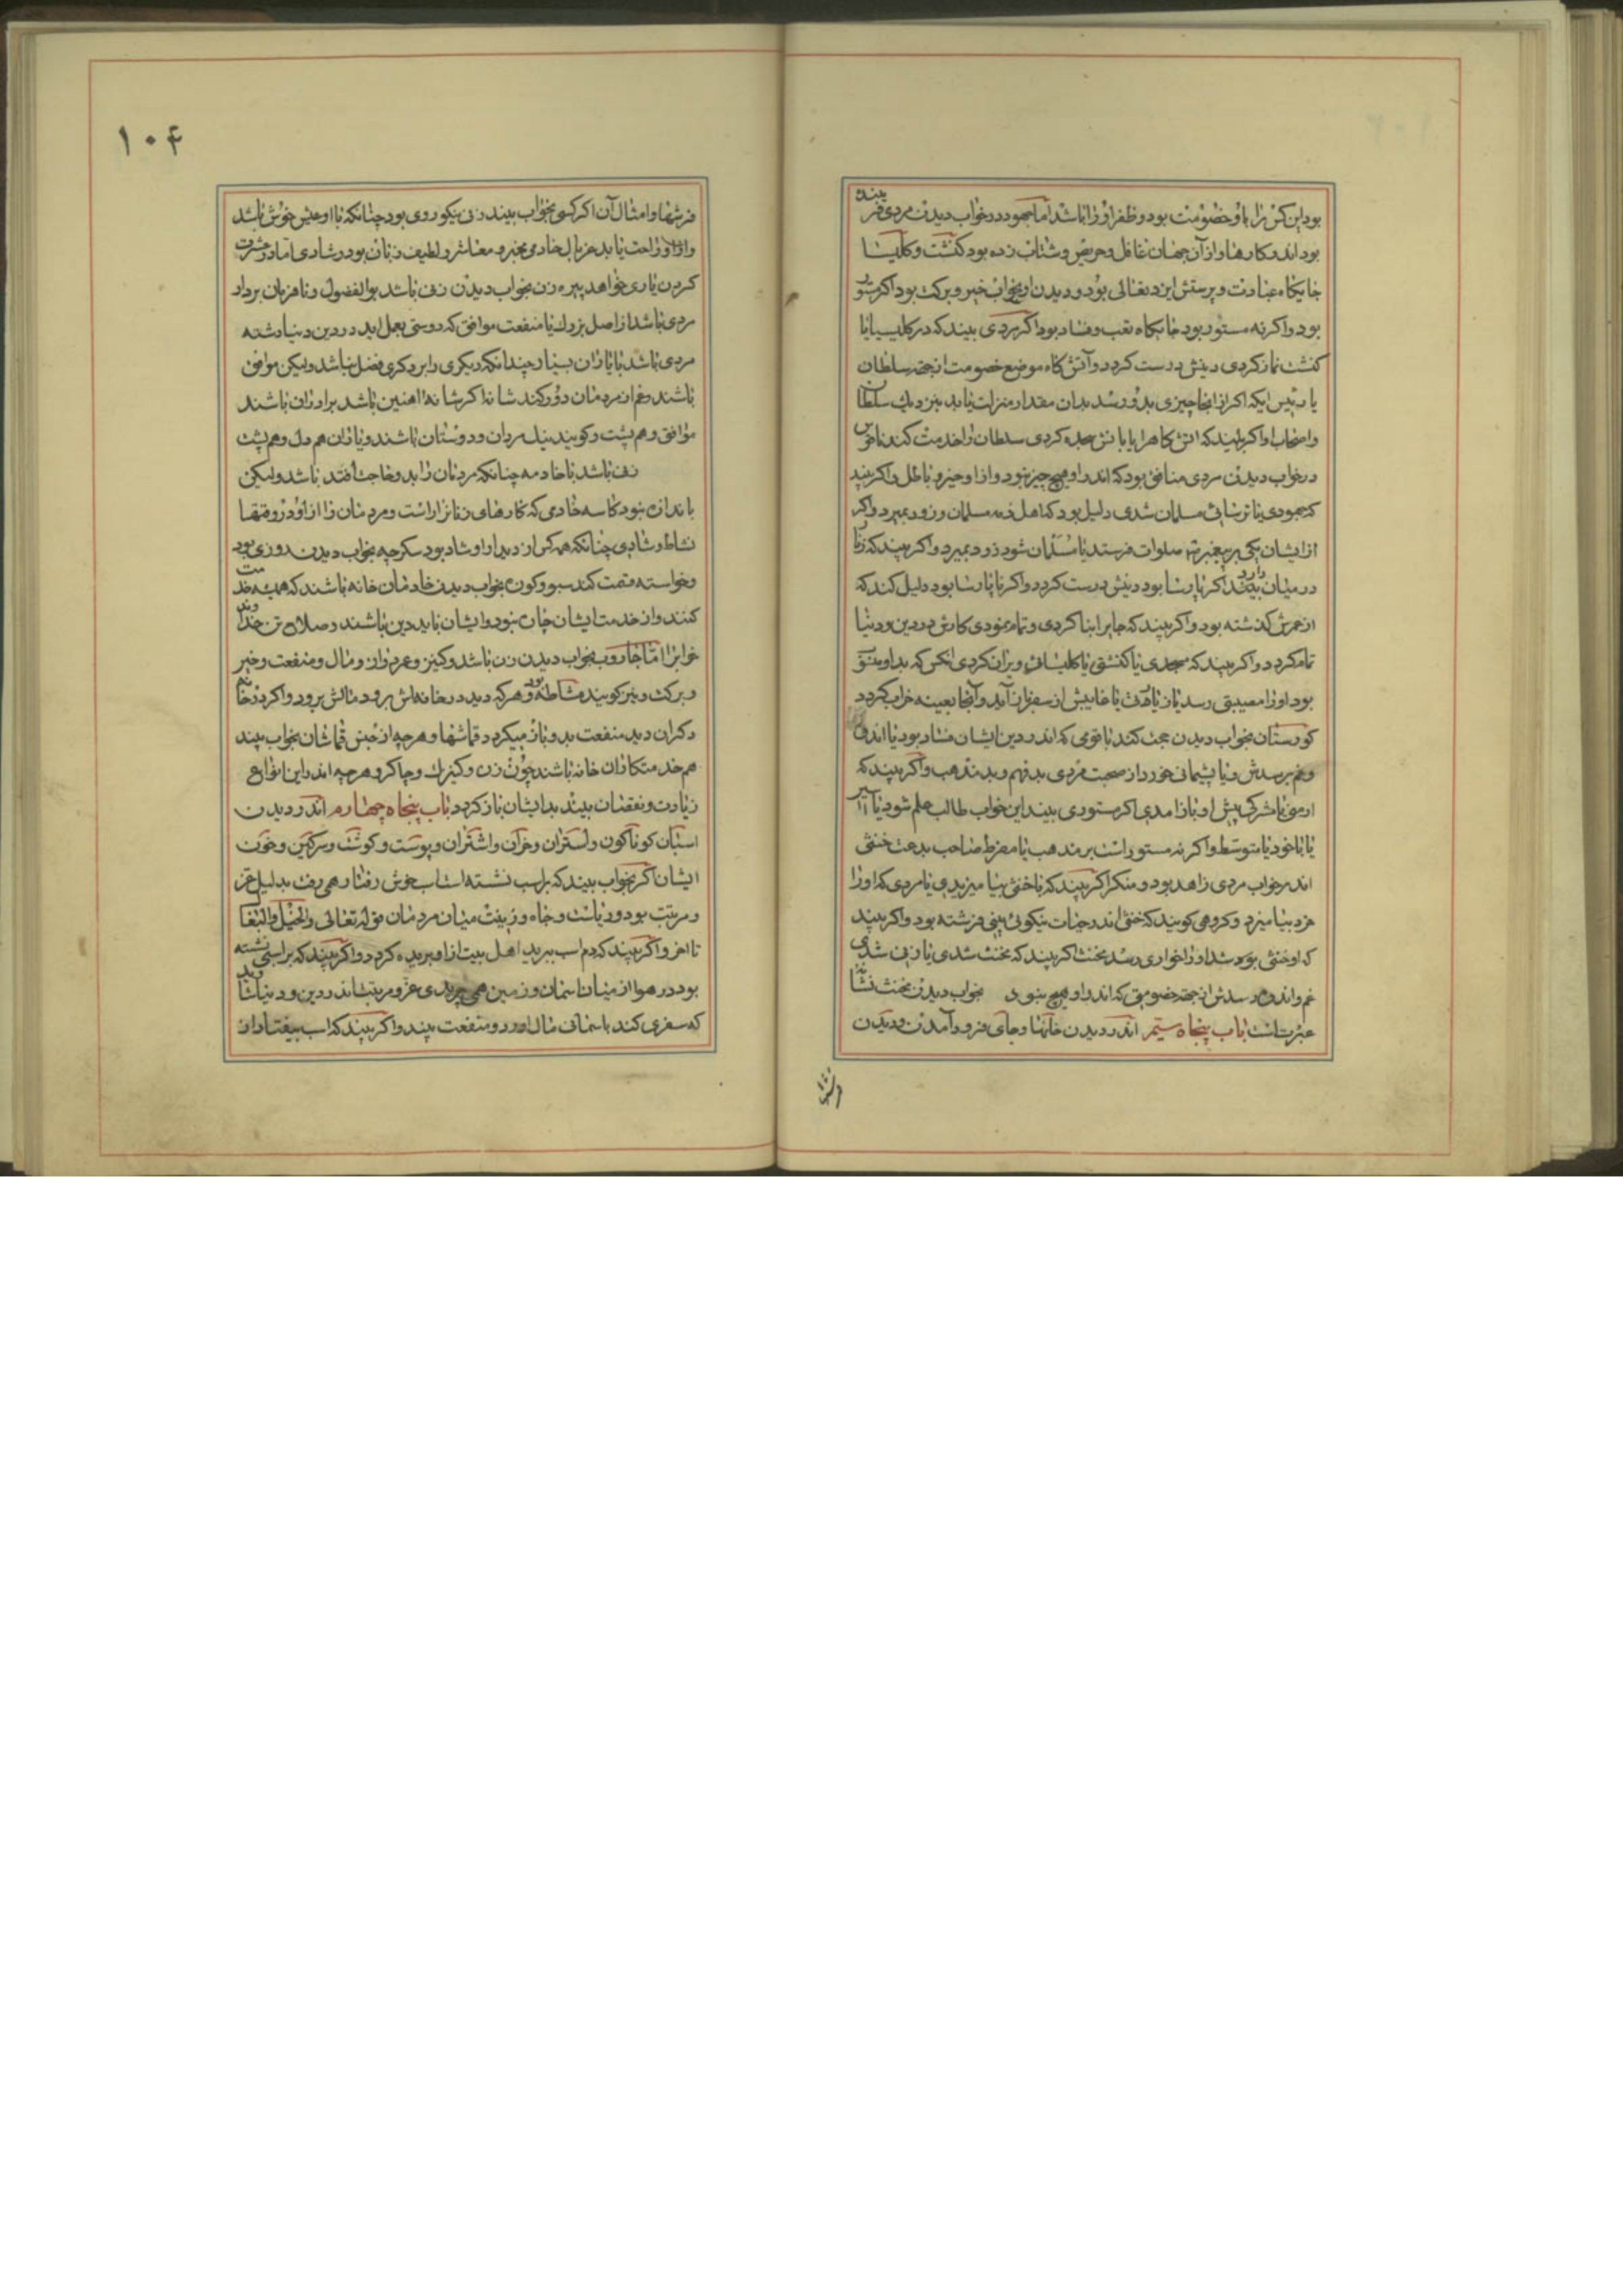 بود این کس را با او خصومت بود و ظفر او را باشد اما جهود در خواب دیدن مردی فریبنده
بود اندر کارها و از آن جهان غافل و حریص و شتاب زده بود کنشت و کلیسا
جایکاه عبادت و پرستش ایزد تعالی بود و دیدن او بخواب خیر و برکت بود اکر مستور
بود و اکر نه مستور بود جایکاه تعب و فساد بود اکر مردی بیند که در کلیسیا یا
کنشت نماز کردی دینش درست کردد و آتش کاه موضع خصومت از جهة سلطان
یا رئیس ایکه اکر از انجا چیزی بدو رسد بدان مقدار منزلت یابد بنزدیک سلطان
واصحاب او اکر بیند که اتش کاه را یا باتش سجده کردی سلطان را خدمت کند ناقوس
در خواب دیدن مردی منافق بود که اندر او هیچ چیز نبود و از او خیزد باطل و اکر بیند
که جهودی یا ترسائی مسلمان شدی دلیل بود که اهل ذمه مسلمان و زود بمیرد و اکر
از ایشان یکی بر پیغمبر صلوات فرستد یا مسلمان شود زود بمیرد و اکر بیند که زنار
در میان دارد اکر پارسا بود دینش درست کردد و اکر ناپارسا بود دلیل کند که
از عمرش کذشته بود و اکر بیند که جایر ابنا کردی و تمام نمودی کارش در دین و دنیا
تمام کردد و اکر بیند که مسجدی یا کنشتی یا کلیسائی ویران کردی انکس که بداو منسوب
بود او را مصیبتی رسد یا زیادت یا غایبش از سفر باز آید و آنجا بعینه خراب کردد
کورستان بخواب دیدن صحبت کند با قومی که اندر دین ایشان فساد بود یا اندوه
و غم برسدش و یا پشیمانی خورد از صحبت مردی بد فهم و بد مذهب و اکر بیند که
ارمنی یا مشرکی پیش او باز امدی اکر مستوری بیند این خواب طالب علم شود یا اسیر
یا با خود یا متوسط و اکر نه مستور است بر مذهب یا مفرط صاحب بدعت خنثی
اندر خواب مردی زاهد بود و منکر اکر بیند که با خنثی بیامیزیدی یا مردی که او را
مزد بیامیزد و کروهی کویند که خنثی اندر حیات نیکوئی بینی فرشته بود و اکر بیند
که او خنثی بود شد او را خواری رسد مخنث اکر بیند که مخنث شدی یا زنی شدی
غم و اندوه رسدش از جهة خصومتی که اندر او هیچ نبود بخواب دیدن مخنث نشانه
عبرتست باب پنجاه سیم اندر دیدن خانها و جای فرود آمدن و دیدن
فرشها
۱۰۴
فرشها و امثال آن اکر کسی بخواب بیند زنی نیکو روی بود چنانکه با او عیش خوش باشد
و از او راحت یابد غربال خادمی مخبر و معاشر و لطیف زبان بود و شادی اماد و عشرت
کردن یاری خواهد پیره زن بخواب دیدن زنی باشد بوالفضول و نافرمان بردار
مردی باشد از اصل بزرک با منفعت موافق که دوستی بعمل اید در دین و دنیا دشته
مردی باشد با یاران بسیار چندانکه دیکری را بر دکری فضل نباشد ولیکن موافق
باشند و غم از مردمان دور کنند شانه اکر شانه اهنین باشد برادران باشند
موافق و هم پشت و کویند نیک مردان و دوستان باشند و یاران هم دل و هم پشت
زنی باشد یا خادمه چنانکه مردمان را بد و حاجت افتد باشد ولیکن
باندازه نبود کاسه خادمی که کارهای زنانرا راست و مردمان را از او در وقتها
نشاط و شادی چنانکه همه کس از دیدار او شاد بود سکرچه بخواب دیدن روزی بود
و خواسته و قسمت کند سبو و کوزه بخواب دیدن خادمان خانه باشند که همیشه خدمت
کنند و از خدمت ایشان چاره نبود و ایشان با بد دین باشند و صلاح تن خداوند
خوابرا اما جاروب بخواب دیدن زن باشد و کنیز و عمر دراز و مال و منفعت و خیر
و برکت و نیز کویند مشاطه بود و هرکه دید در خانه‌اش برود مالش برود و اکر در خانه
دکران دید منفعت بد و باز میکردد قماشها و هرچه از جنس قماشان بخواب بیند
هم خدمتکاران خانه باشند چون زن و کنیزک و چاکر و هرچه اندر این انواع
زیادت و نقصان بیند بدایشان باز کردد باب پنجاه چهارم اندر دیدن
اسبان کوناکون و استران و خران و اشتران و پوست و کوشت و سرکین و خون
ایشان اکر بخواب بیند که بر اسب نشسته است اسب خوش رفتار همی رفت بدلیل عز
و مرتبت بود و ریاست و جاه و زینت میان مردمان قوله تعالی والخیل والبغال
تا اخر و اکر بیند که دم اسب ببرید اهل بیت از او بریده کردد و اکر بیند که بر اسبی نشسته
بود در هوا از میان اسمان و زمین همی پریدی عز و مرتبت اندر دین و دنیا شاید
که سفری کند باسانی مال اورد و منفعت بیند و اکر بیند که اسب بیفتاد از